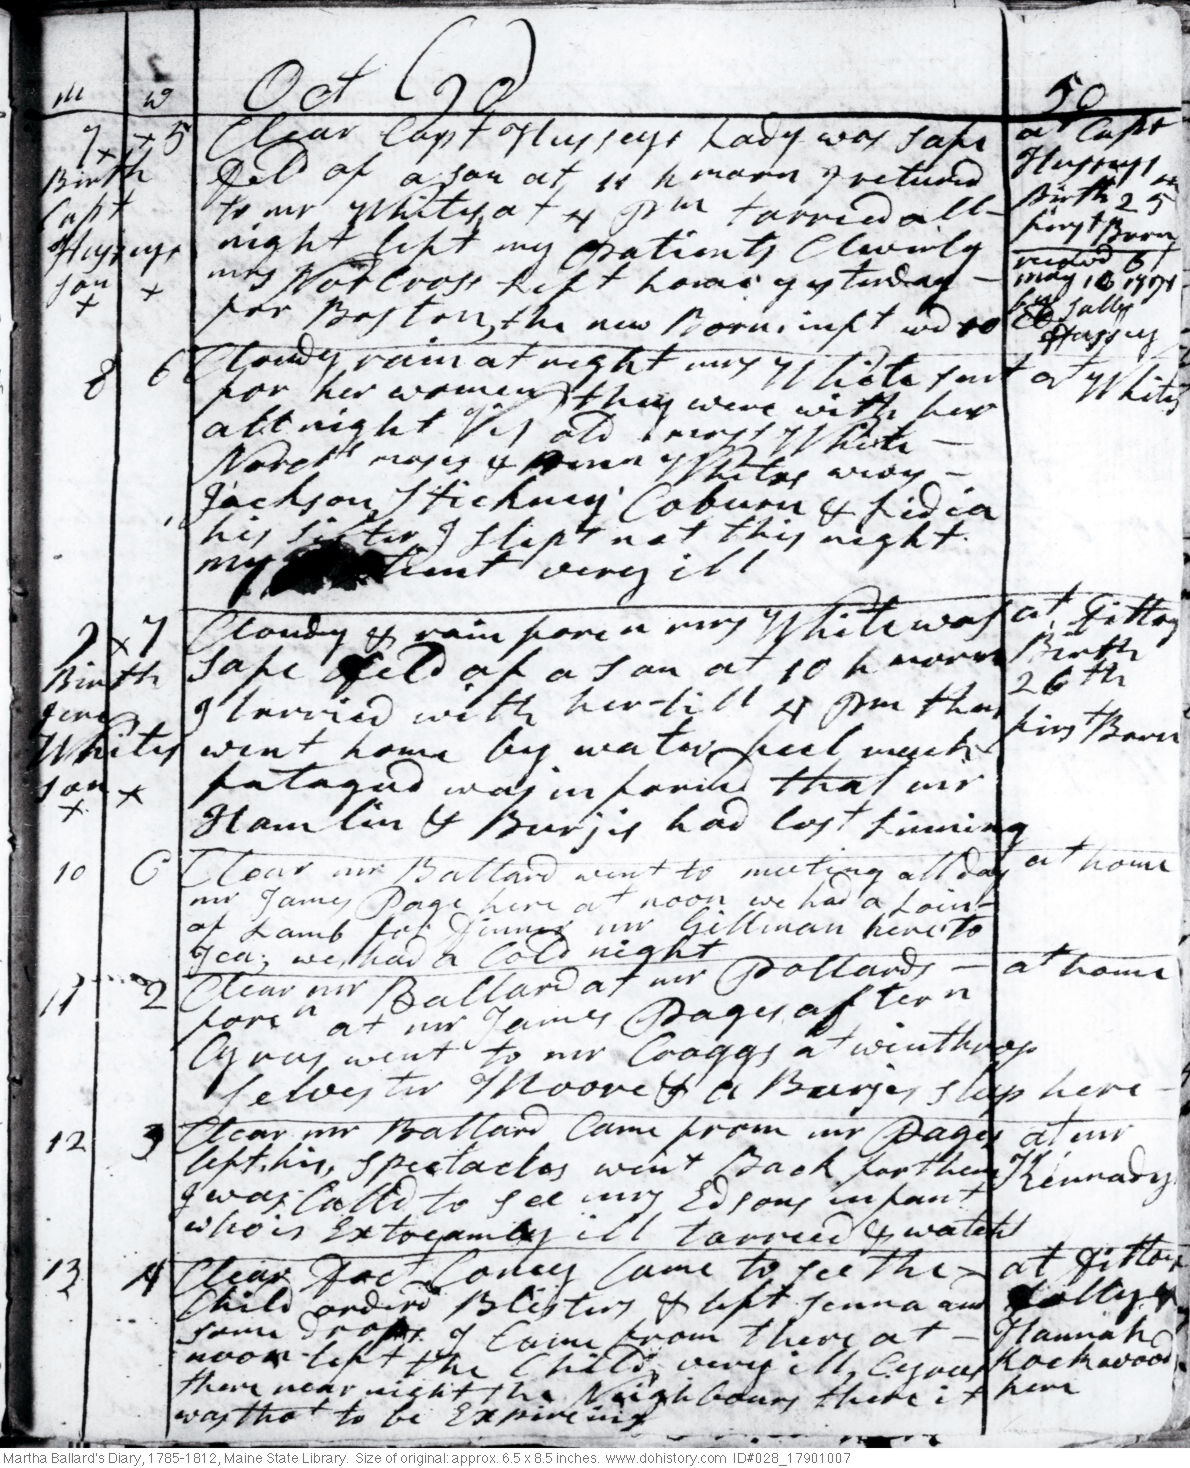 m w Oct (90) 50
7 x x 5 Clear Capt Husseys Lady was safe at Capt
Birth Deld of a son at 11 h morn I returnd Husseys
Capt to mr Whites at 4 pm tarried all Birth 25
Husseys night left my patients Cleverly first Born
son mrs Norcross left home yesterday - recievd 6/
x x for Boston, the new Born inft wd 10 lb may 10 1791
by Sally
Hussey
8 6 Cloudy rain at night mrs White sent at Whites
for her women they were with her
all night old mrss White -
moses & Whites wivs -
Jackson, Stickney Coburn & Lidia
his sister I slept not this night
my patient very ill
9 x 7 Cloudy & rain foren mrs White was at Ditto
Birth safe Deld of a son at 10 h morn Birth
Jere I tarried with her till 4 pm then 26th
Whites went home by water feel much first Born
son fatagud was informd that mr
x x Hamlin & Burjis had lost Linning
10 C Clear mr Ballard went to meeting all day at home
mr James Page here at noon we had a Loin
of Lamb for Dinner mr Gillman here to
Tea, we had a Cold night
11 2 Clear mr Ballard at mr Pollards - at home
foren at mr James Pages aftern
Cyrus went to mr Craggs at winthrop
Selvester Moore & a Burjes slep here -
12 3 Clear mr Ballard Came from mr Pages at mr
left his spectacles went Back for them Kennadys
I was Calld to see mrs Edsons infant
who is Extreamly ill tarried & watcht
13 4 Clear Doct Coney Came to see the - at Ditto
Child orderd Blisters & left senna and Dolly &
some drops I Came from there at - Hannah
noon left the Child very ill, Cyrus Rockwood
there near night the Neighbours there it here
was thot to be Expireing
Martha Ballard's Diary, 1785-1812, Maine State Library. Size of original: approx. 6.5 x 8.5 inches. www.dohistory.com ID#028_17901007